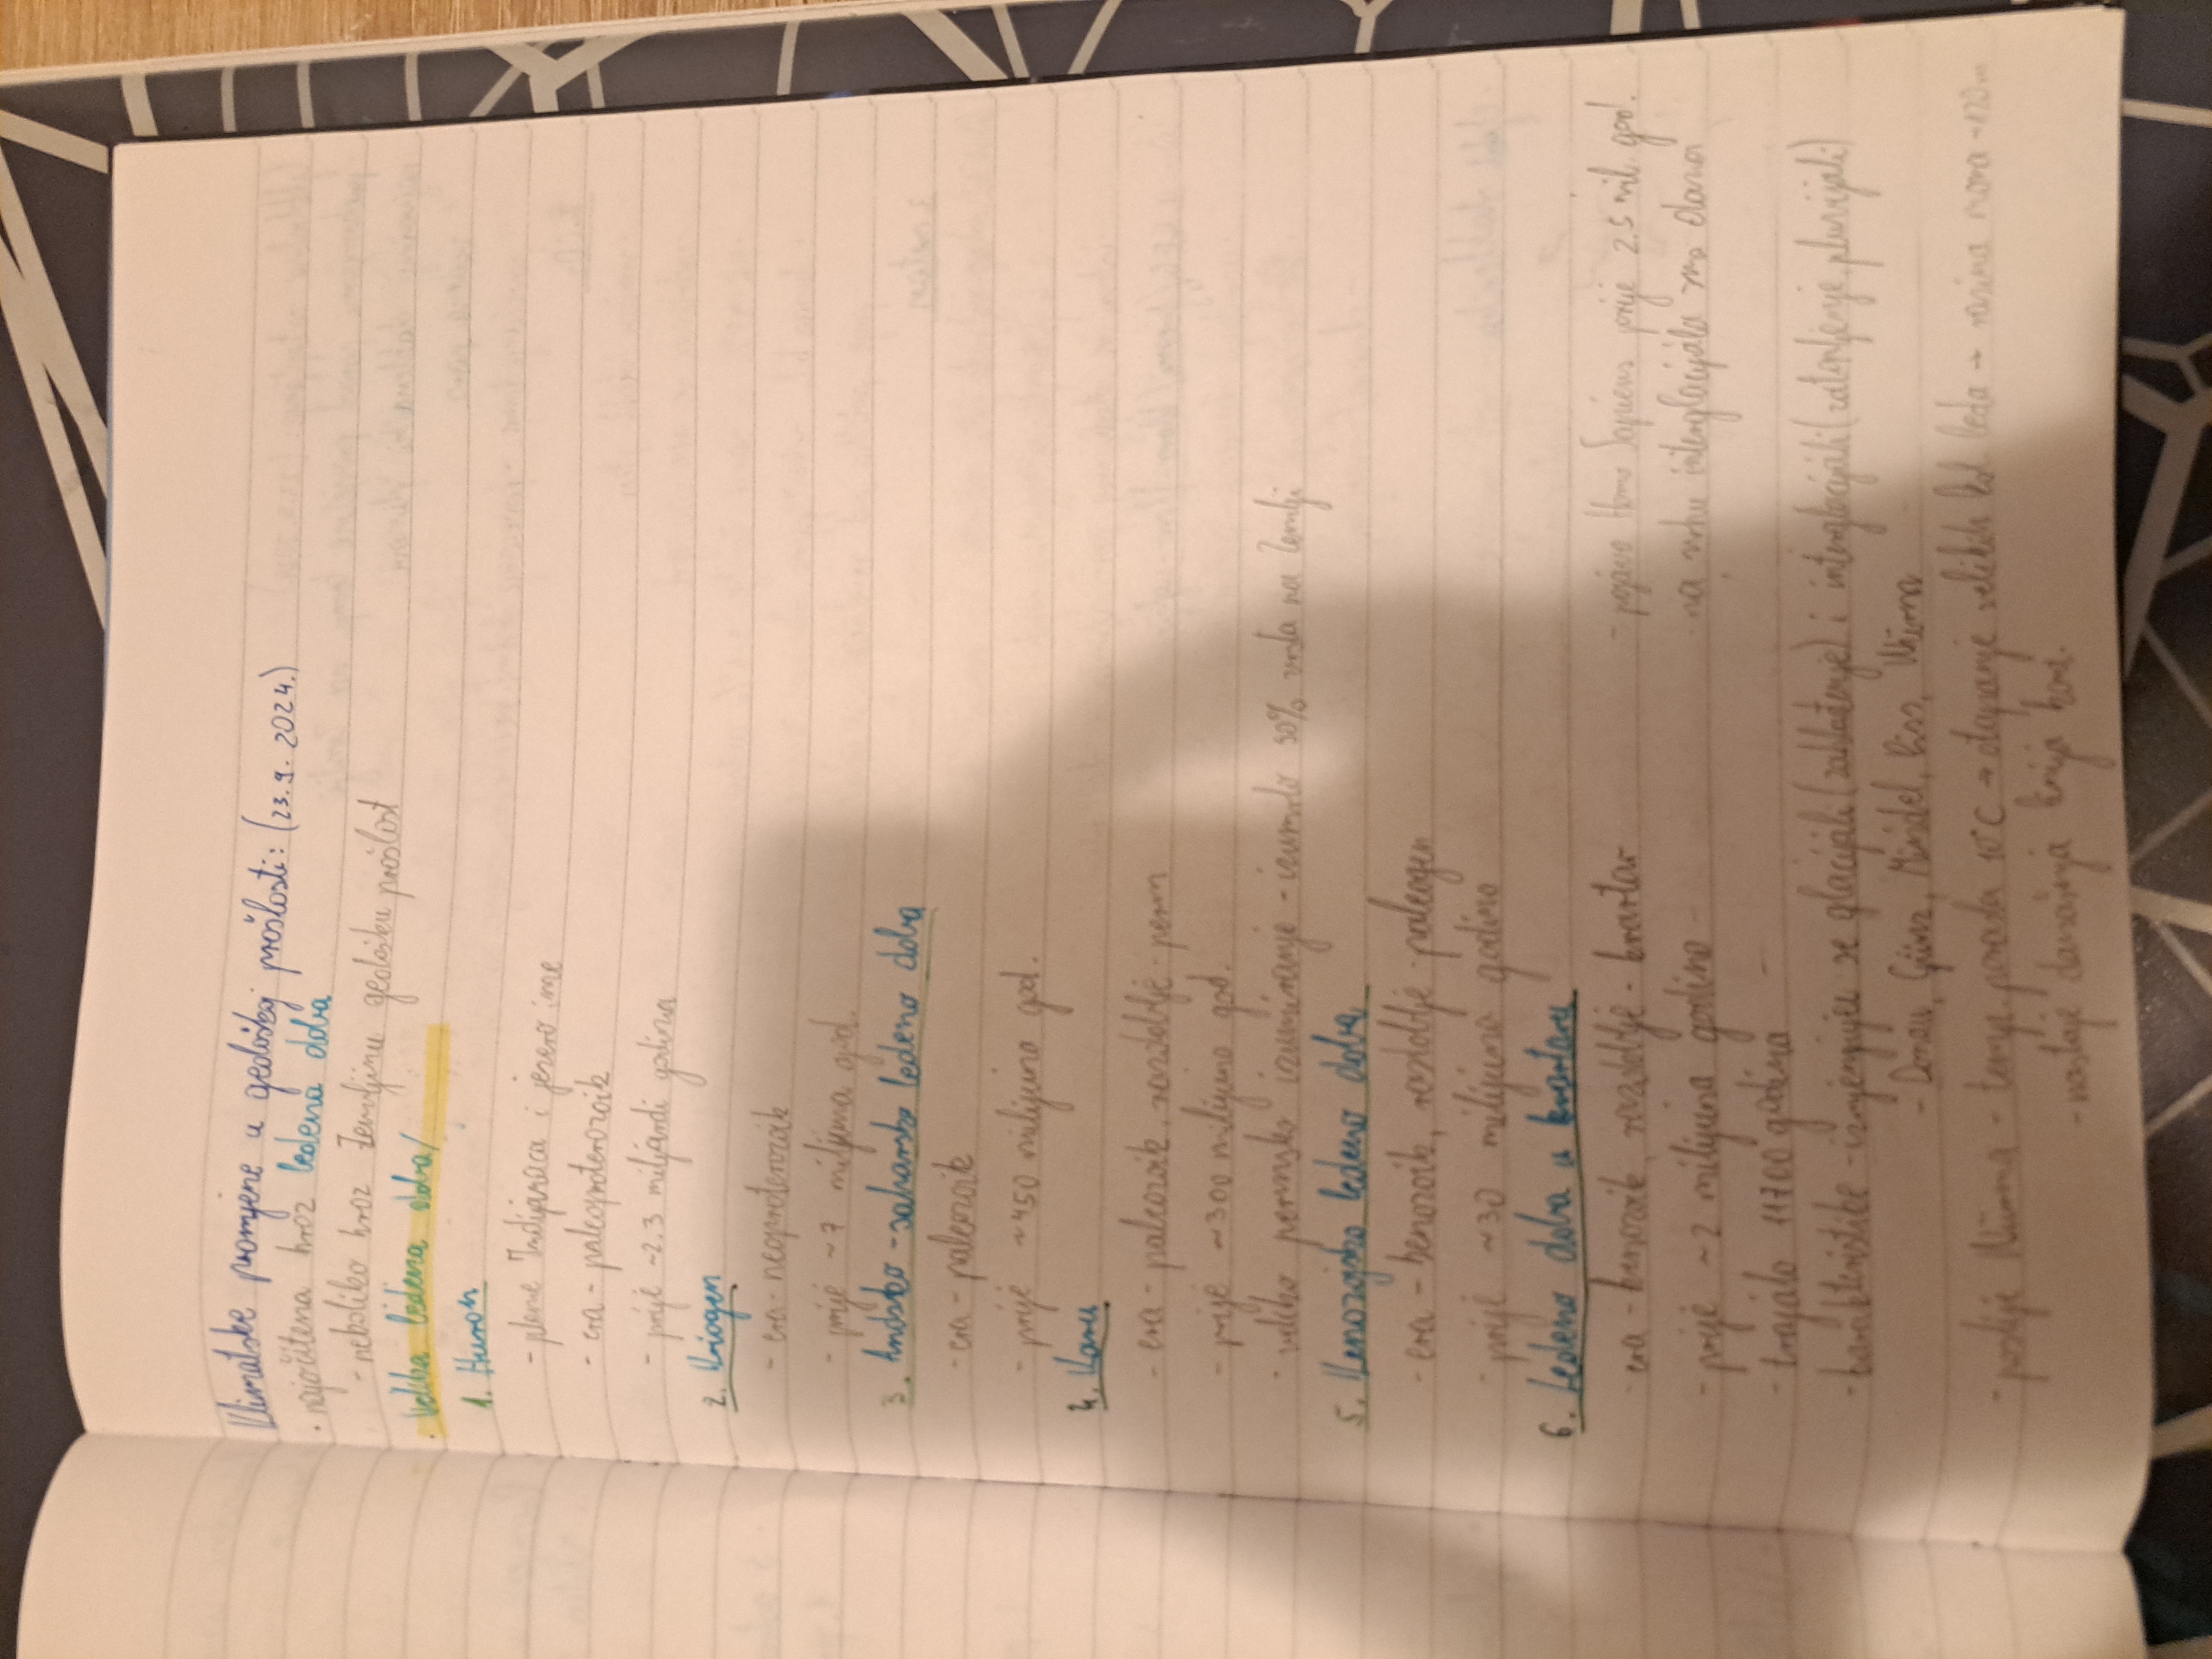 Klimatske promjene u geološkoj prošlosti: (23.9. 2024.)
· najočitena kroz ledena doba
- nekoliko kroz Zemljinu geološku prošlost
· Velika ledena doba/
1. Huron
- pleme Indijanaca i jezero ime
- era - paleoproterozoik
- prije ~2.3 milijardi godina
2. Kriogen
- era - neoproterozoik
- prije ~7 milijuna god.
3. Andsko - saharsko ledeno doba
- era - paleozoik
- prije ~450 milijuna god.
4. Karu
- era - paleozoik, razdoblje - perm
- prije ~300 milijuna god.
- veliko permsko izumiranje - izumrlo 90% vrsta na Zemlji
5. Kenozojsko ledeno doba
- era - kenozoik, razdoblje - paleogen
- prije ~30 milijuna godina
6. Ledeno doba u kvartaru
- era - kenozoik, razdoblje - kvartar - pojava Homo Sapiens prije 2.5 mil. god.
- prije ~2 milijuna godina - - na vrhu interglacijala smo danas
- trajalo 11700 godina -
- karakteristike - izmjenjuju se glacijali (zahlađenje) i interglacijali (zatopljenje, pluvijali)
- Donau, Günz, Mindel, Riss, Würm
- poslije Würma - temp. porasla 10°C → otapanje velikih kol. leda → razina mora ~120m
- nastaje današnja linija